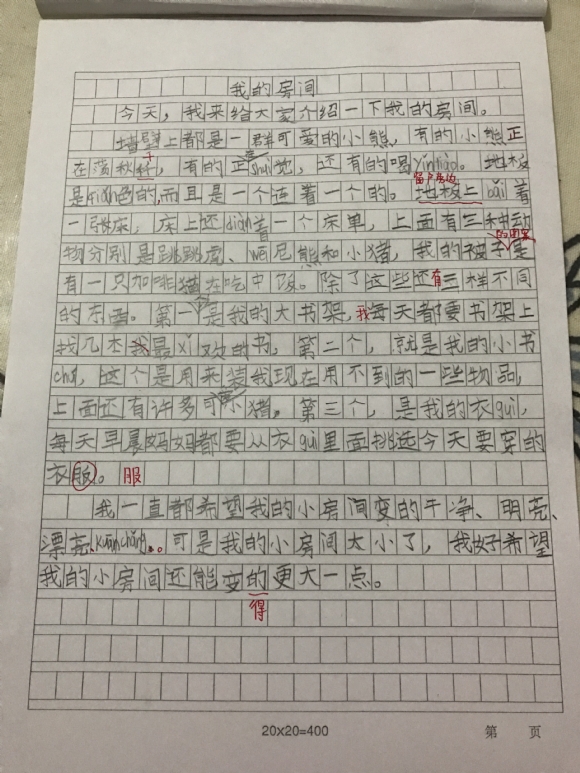 我的房间
今天，我来给大家介绍一下我的房间。
墙壁上都是一群可爱的小熊，有的小熊正
在荡秋千，有的正shuì觉，还有的喝yǐnliào。地板
是qiǎn色的，而且是一个连着一个的。地板上bǎi着
窗户旁边
一张床，床上还diàn着一个床单，上面有三种动
的图案
物分别是跳跳虎、wéi尼熊和小猪，我的被子里
有一只加啡猫在吃中饭。除了这些还有三样不同
的东西。第一是我的大书架，我每天都要书架上
找几本我最xǐ欢的书，第二个，就是我的小书
chú，这个是用来装我现在用不到的一些物品，
上面还有许多可小猪，第三个，是我的衣guì，
每天早晨妈妈都要从衣guì里面挑选今天要穿的
衣服。服
我一直都希望我的小房间变的干净、明亮、
漂亮、kuānchǎng。可是我的小房间太小了，我好希望
我的小房间还能变的更大一点。
得
20×20=400 第 页